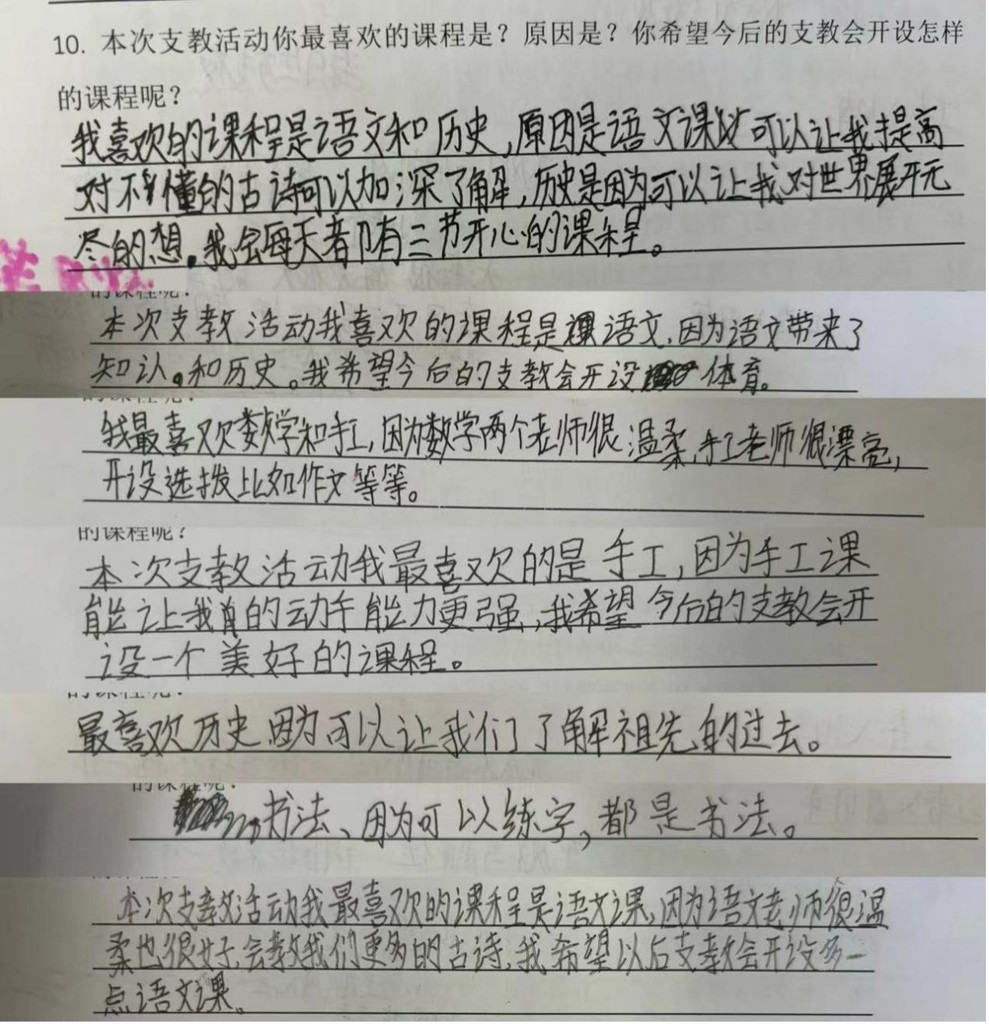 10. 本次支教活动你最喜欢的课程是？原因是？你希望今后的支教会开设怎样
的课程呢？
我喜欢的课程是语文和历史，原因是语文课可以让我提高
对不懂的古诗可以加深了解，历史是因为可以让我对世界展开无
尽的想。我会每天都有三节开心的课程。
的课程呢？
本次支教活动我喜欢的课程是语文，因为语文带来了
知认。和历史。我希望今后的支教会开设体育。
的课程呢？
我最喜欢数学和手工，因为数学两个老师很温柔，手工老师很漂亮，
开设选拨比如作文等等。
的课程呢？
本次支教活动我最喜欢的是手工，因为手工课
能让我的动手能力更强，我希望今后的支教会开
设一个美好的课程。
的课程呢？
最喜欢历史因为可以让我们了解祖先的过去。
的课程呢？
书法、因为可以练字，都是书法。
本次支教活动我最喜欢的课程是语文课，因为语文老师很温
柔也很好，会教我们更多的古诗，我希望以后支教会开设多一
点语文课。